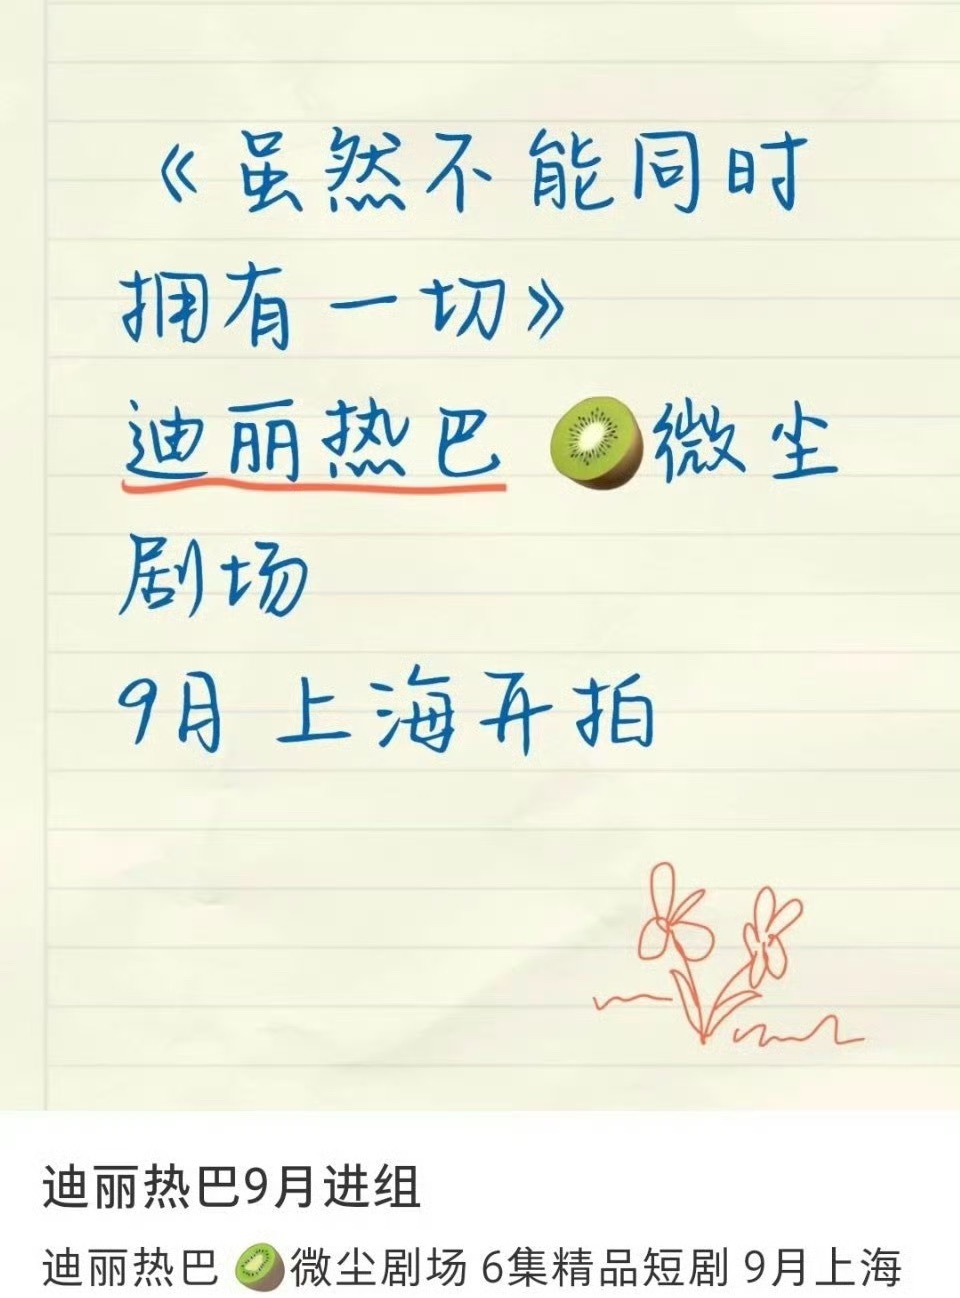 《虽然不能同时
拥有一切》
迪丽热巴 🥝微尘
剧场
9月上海开拍
迪丽热巴9月进组
迪丽热巴 🥝微尘剧场 6集精品短剧 9月上海